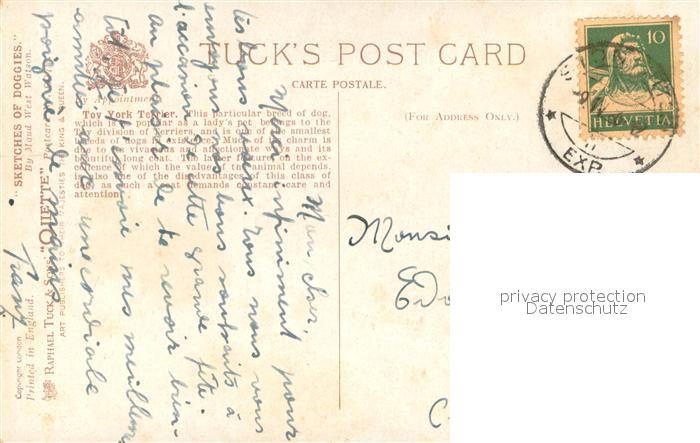 TUCK'S POST CARD
CARTE POSTALE.
(FOR ADDRESS ONLY.)
By Appointment
Toy York Terrier. This particular breed of dog,
which is as popular as a lady's pet belongs to the
Toy division of terriers, and is one of the smallest
breeds of dogs in existence. Much of its charm is
due to its vivacious and affectionate ways and its
beautiful long coat. The latter feature on the ex-
cellence of which the value of the animal depends,
is also one of the disadvantages of this class of
dog, as such a coat demands constant care and
attention.
"SKETCHES OF DOGGIES."
By Maud West Watson.
RAPHAEL TUCK & SONS' "OILETTE" Postcard
ART PUBLISHERS TO THEIR MAJESTIES THE KING & QUEEN.
Copyright London
Printed in England.
Mon cher,
Merci infiniment pour
tes bons vœux. Nous vous
envoyons nos bons souhaits à
l'occasion de cette grande fête.
au plaisir de te revoir bien-
tôt, et envoie mes meilleures
amitiés avec une cordiale
poignée de main
Monsi
Edo
10
HELVETIA
EXP.
privacy protection
Datenschutz